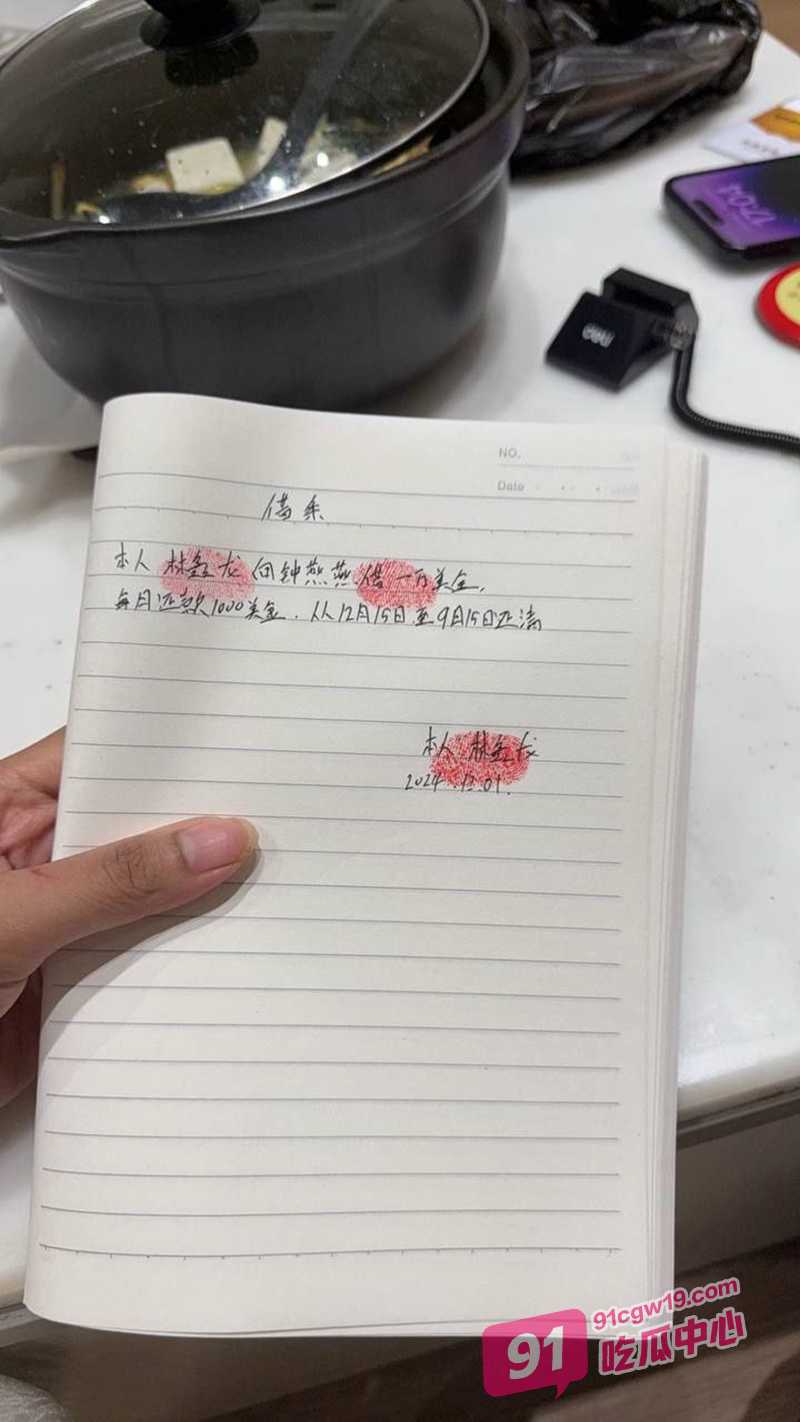 17:04
deli
NO.
Date
借条
本人 林金龙 向钟燕燕借一万美金,
每月还款1000美金.从12月15日至9月15日还清
本人 林金龙
2024.12.01.
91
91cgw19.com
吃瓜中心